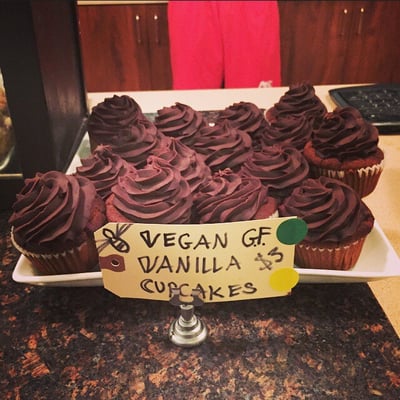 VEGAN G.F.
VANILLA $3
CUPCAKES